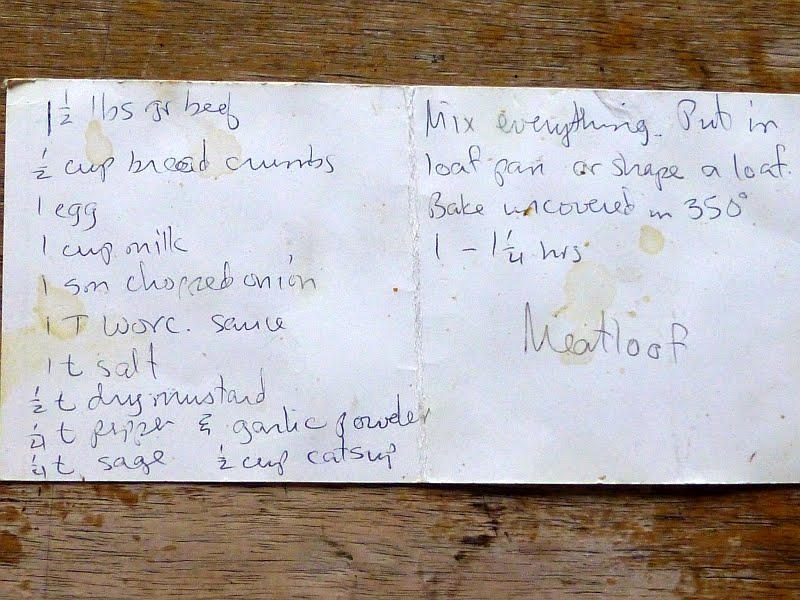 1 1/2 lbs gr beef
1/2 cup bread crumbs
1 egg
1 cup milk
1 sm chopped onion
1 T worc. sauce
1 t salt
1/2 t dry mustard
1/4 t pepper & garlic powder
1/4 t sage 1/2 cup catsup
Mix everything. Put in
loaf pan or shape a loaf.
Bake uncovered in 350°
1 - 1 1/4 hrs
Meatloaf